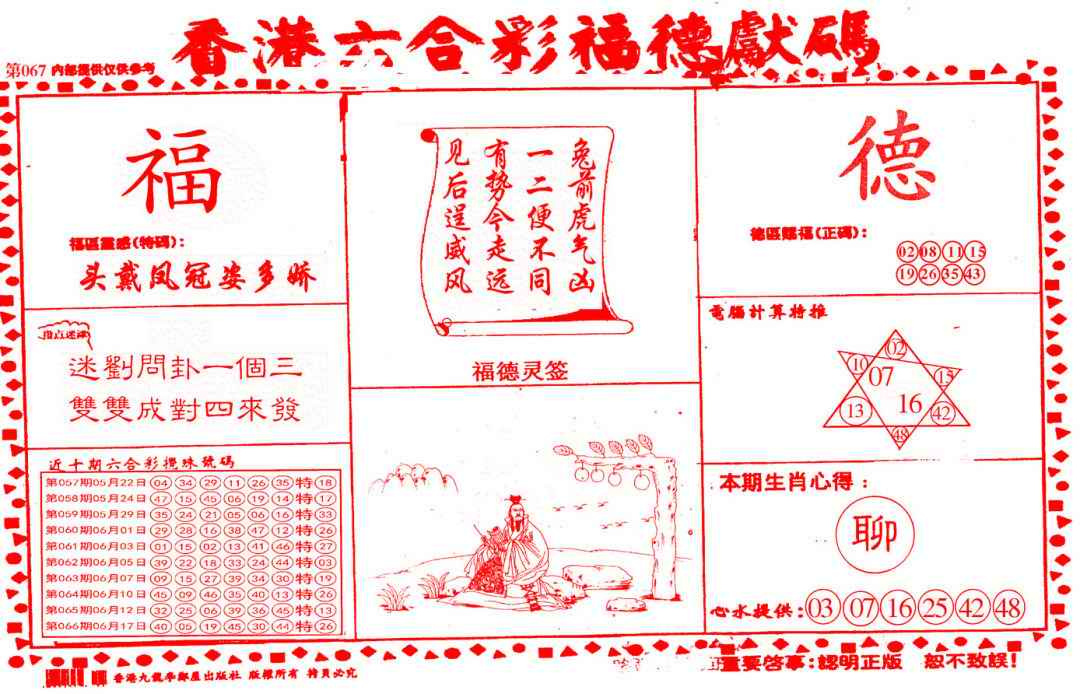 香港六合彩福德獻碼
第067 内部提供仅供参考
福
福區靈感(特碼):
头戴凤冠姿多娇
指点迷津
迷劉問卦一個三
雙雙成對四來發
近十期六合彩攪珠號碼
第057期05月22日 04 34 29 11 26 35 特 18
第058期05月24日 47 15 45 06 19 14 特 17
第059期05月29日 35 24 21 05 06 16 特 33
第060期06月01日 29 28 16 38 47 12 特 26
第061期06月03日 01 15 02 13 41 46 特 27
第062期06月05日 39 22 18 33 24 44 特 03
第063期06月07日 09 15 27 39 34 30 特 19
第064期06月10日 45 09 46 35 40 13 特 26
第065期06月12日 32 25 06 39 36 45 特 13
第066期06月17日 40 05 19 45 30 44 特 26
兔前虎气凶
一二便不同
有势今走远
见后逞威风
福德灵签
德
德區賜福(正碼):
02 08 11 15
19 26 35 43
電腦計算特推
02
10 07 15
13 16 42
48
本期生肖心得:
聊
心水提供: 03 07 16 25 42 48
香港九龍李鄭屋出版社 版權所有 特員必究
重要啓事:認明正版 恕不致誤!